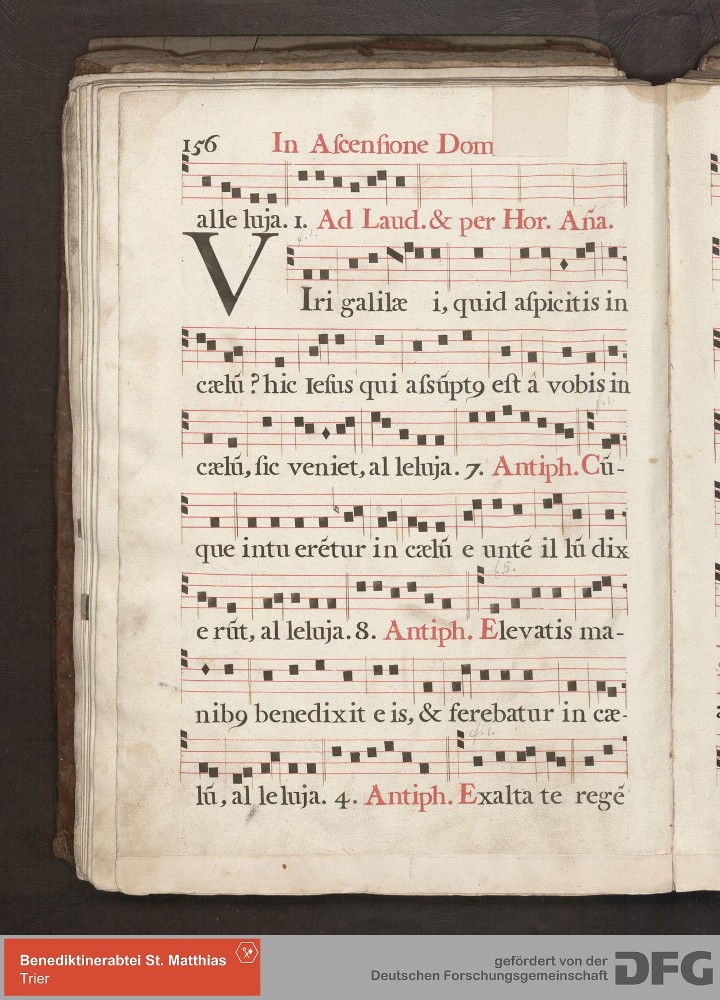 156 In Ascensione Dom
alle luja. 1. Ad Laud. & per Hor. Aña.
VIri galilæ i, quid aspicitis in
cælū? hic Iesus qui assūpt9 est â vobis in
cælū, sic veniet, al leluja. 7. Antiph. Cū-
que intu erētur in cælū e untē il lū dix
e rūt, al leluja. 8. Antiph. Elevatis ma-
nib9 benedixit e is, & ferebatur in cæ-
lū, al leluja. 4. Antiph. Exalta te regē
Benediktinerabtei St. Matthias
Trier
gefördert von der
Deutschen Forschungsgemeinschaft
DFG